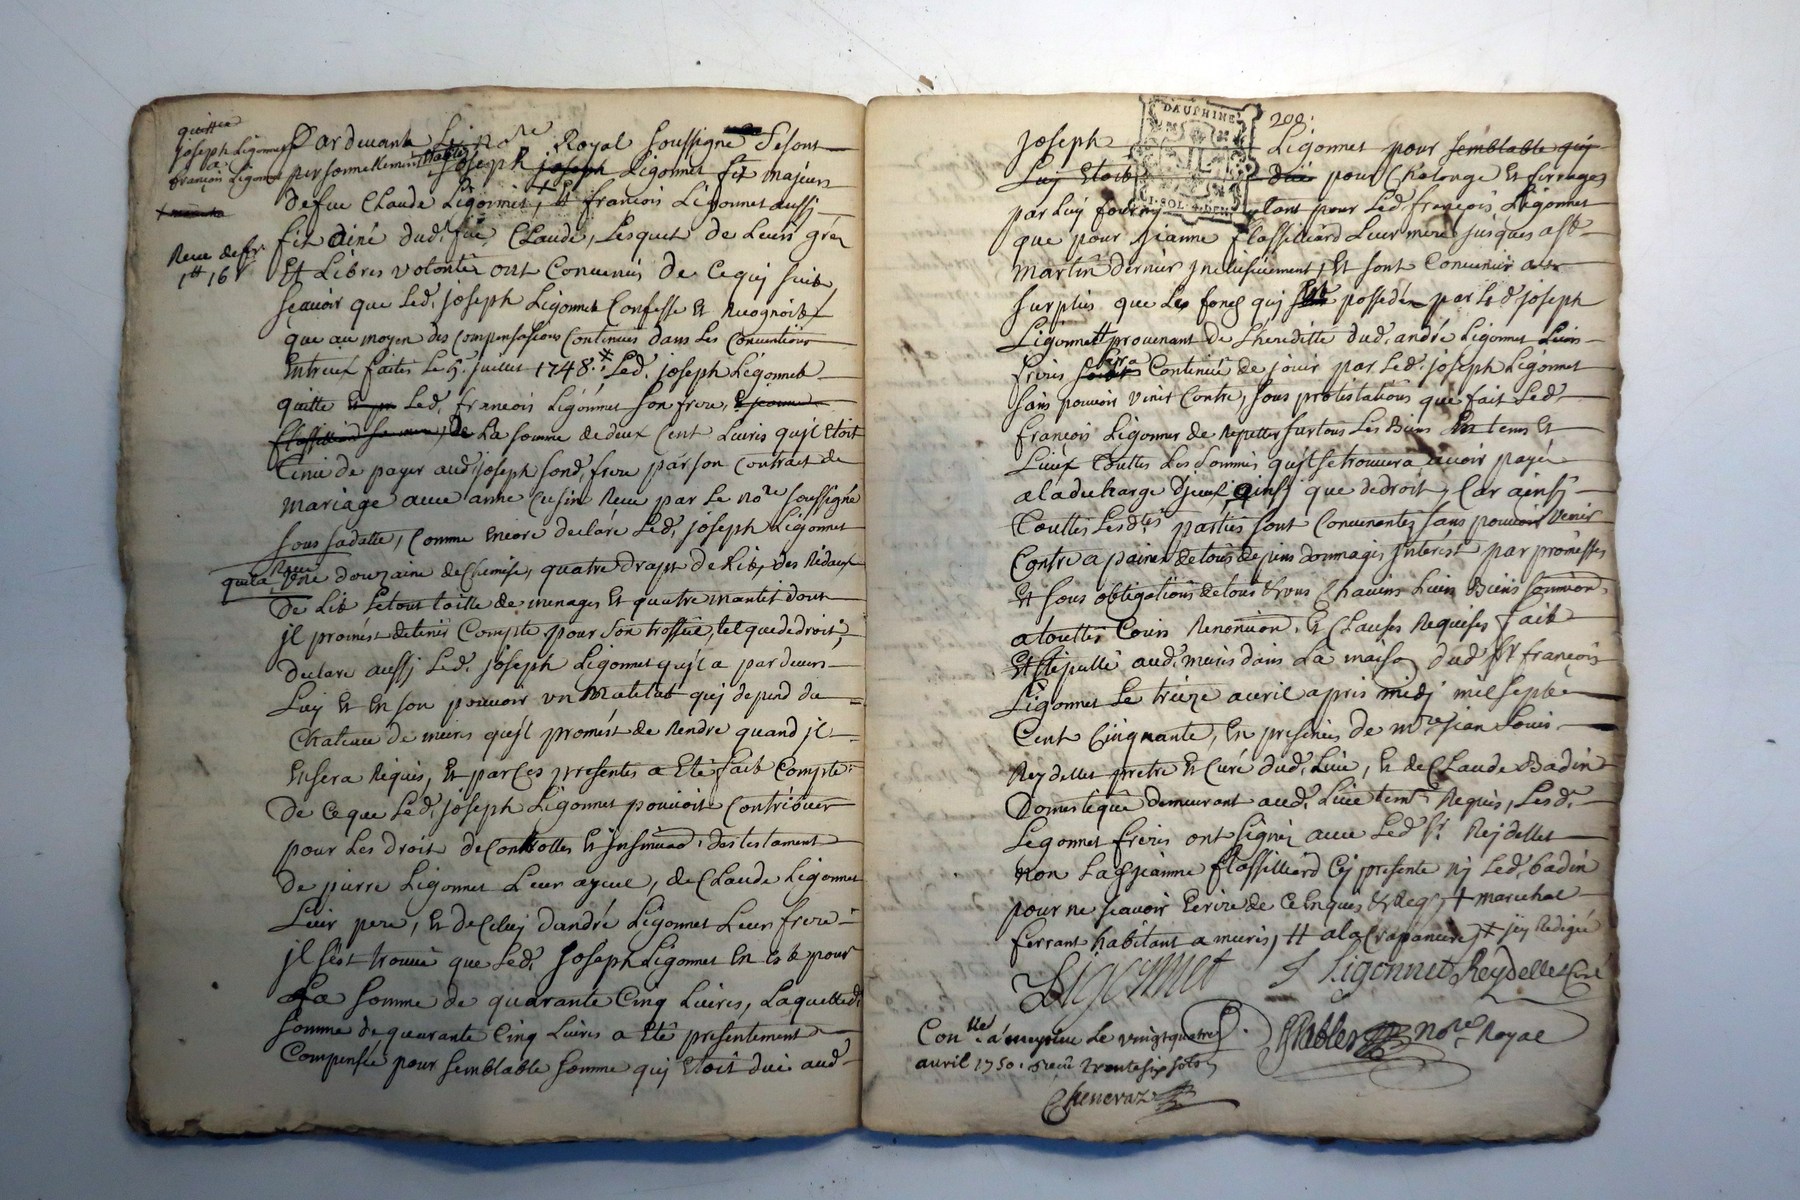 quittce
joseph Ligonnet
a
françois Ligonnet
Reçu
1 ʰ 16 ˢ
Pardevant Le noʳᵉ Royal soussigné se sont
personnellement establis joseph joseph Ligonnet fix majeurs
defue Claude Ligonnet, ++ françois Ligonnet aussy
fix ainé dud. fue Claude, Lesquels de Leurs gréz
Et Libres volontés ont Convenus de Cequj suit,
sçavoir que Led. joseph Ligonnet Confesse et Recognoist
que au moyen des Compensations Contenues dans Les Conventions
Entreux faites Le 5. juillet 1748. Led. joseph Ligonnet
quitte Led. françois Ligonnet son frere,
La somme dedeux Cent Livres qu'jl Etoit
Tenu de payer aud. joseph sond. frere par son Contract de
mariage avec anne Cusin Reçu par Le noʳᵉ soussigné
sous sadatte, Comme Encore declare Led. joseph Ligonnet
qu'il a Reçue
une douzaine de Chemise, quatre draps de Lit, des Rideaux
De Lit Letout toille de menages Et quatre mantils dont
jl promést detenir Compte pour son trossué, tel quededroit,
Declare aussj Led. joseph Ligonnet qu'jl a pardevers
Luy Et En son pouvoir un Matelat quj depend du
Chateau de meiris qu'jl promést de Rendre quand jl
Ensera Requis, Et par Ces presentes a Eté fait Compte
De Ceque Led. joseph Ligonnet pouvoit Contribuer
pour Les droit deControlles Et jnsinuaõ. des testament
De pierre Ligonnet Leur ayeul, de Claude Ligonnet
Leur pere, Et deCeluy d'andré Ligonnet Leur frere
jl s'est trouvé que Led. joseph Ligonnet En Est pour
La somme de quarante Cinq Livres, Laquelle d.
somme de quarante Cinq Livres a Eté presentement
Compensée pour semblable somme quj Etoit due aud.
DAUPHINE
1. SOL. 4. DEN.
209.
joseph Ligonnet pour semblable quj
Luy Etoit due pour Chalonge Et firrages
par Luy fourny tant pour Led. françois Ligonnet
que pour jeanne flassilliard Leur mere jusques a sᵗ
martin dernier jnclusivement, Et sont Convenus au
surplus que Les fonds quj sont possedés par Led. joseph
Ligonnet ++ provenant de Lhereditte dud. andré Ligonnet Leur
frere sera Continué de jouir par Led. joseph Ligonnet
sans pouvoir venir Contre, sous protestations que fait Led.
françois Ligonnet de Repetter surtous Les Biens En tems Et
Lieux touttes Les sommes qu'jl setrouvera avoir payé
ala decharge d'jceux ainsj que dedroit, Car ainsj
touttes Lesdᵗᵉˢ parties sont Convenantes sans pouvoir venir
Contre a peines detous depens dommages jnterest par promesses
Et sous obligations detous Chacuns Leurs Biens soumion
a touttes Cours Renonion. Et Clauses Requises fait
Et stipullé aud. meiris dans La maison dud. sʳ françois
Ligonnet Le treize avril apres midj mil sept
Cent Cinquante, En presences de mʳᵉ jean Louis
Reydellet pretre Et Curé dud. Lieu, Et deClaude Badin
Domestique demeurant aud. Lieu temᵗˢ Requis, Lesd.
Legonnet freres ont signéz avec Led. sʳ Reydellet
non Lad. jeanne flassilliard Cy presente nj Led. badin
pour ne sçavoir Ecrire de Ce Enquis Et Req. + marechal
ferrant habitant a meiris, ++ ala Crapaniere,
Ligonnet J Ligonnet Reydellet Curé
noʳᵉ Royal
Conᵘᵉˡ a meyrieu Le vingtquatre
avril 1750. Reçu Trentesix sols
Cheneraz